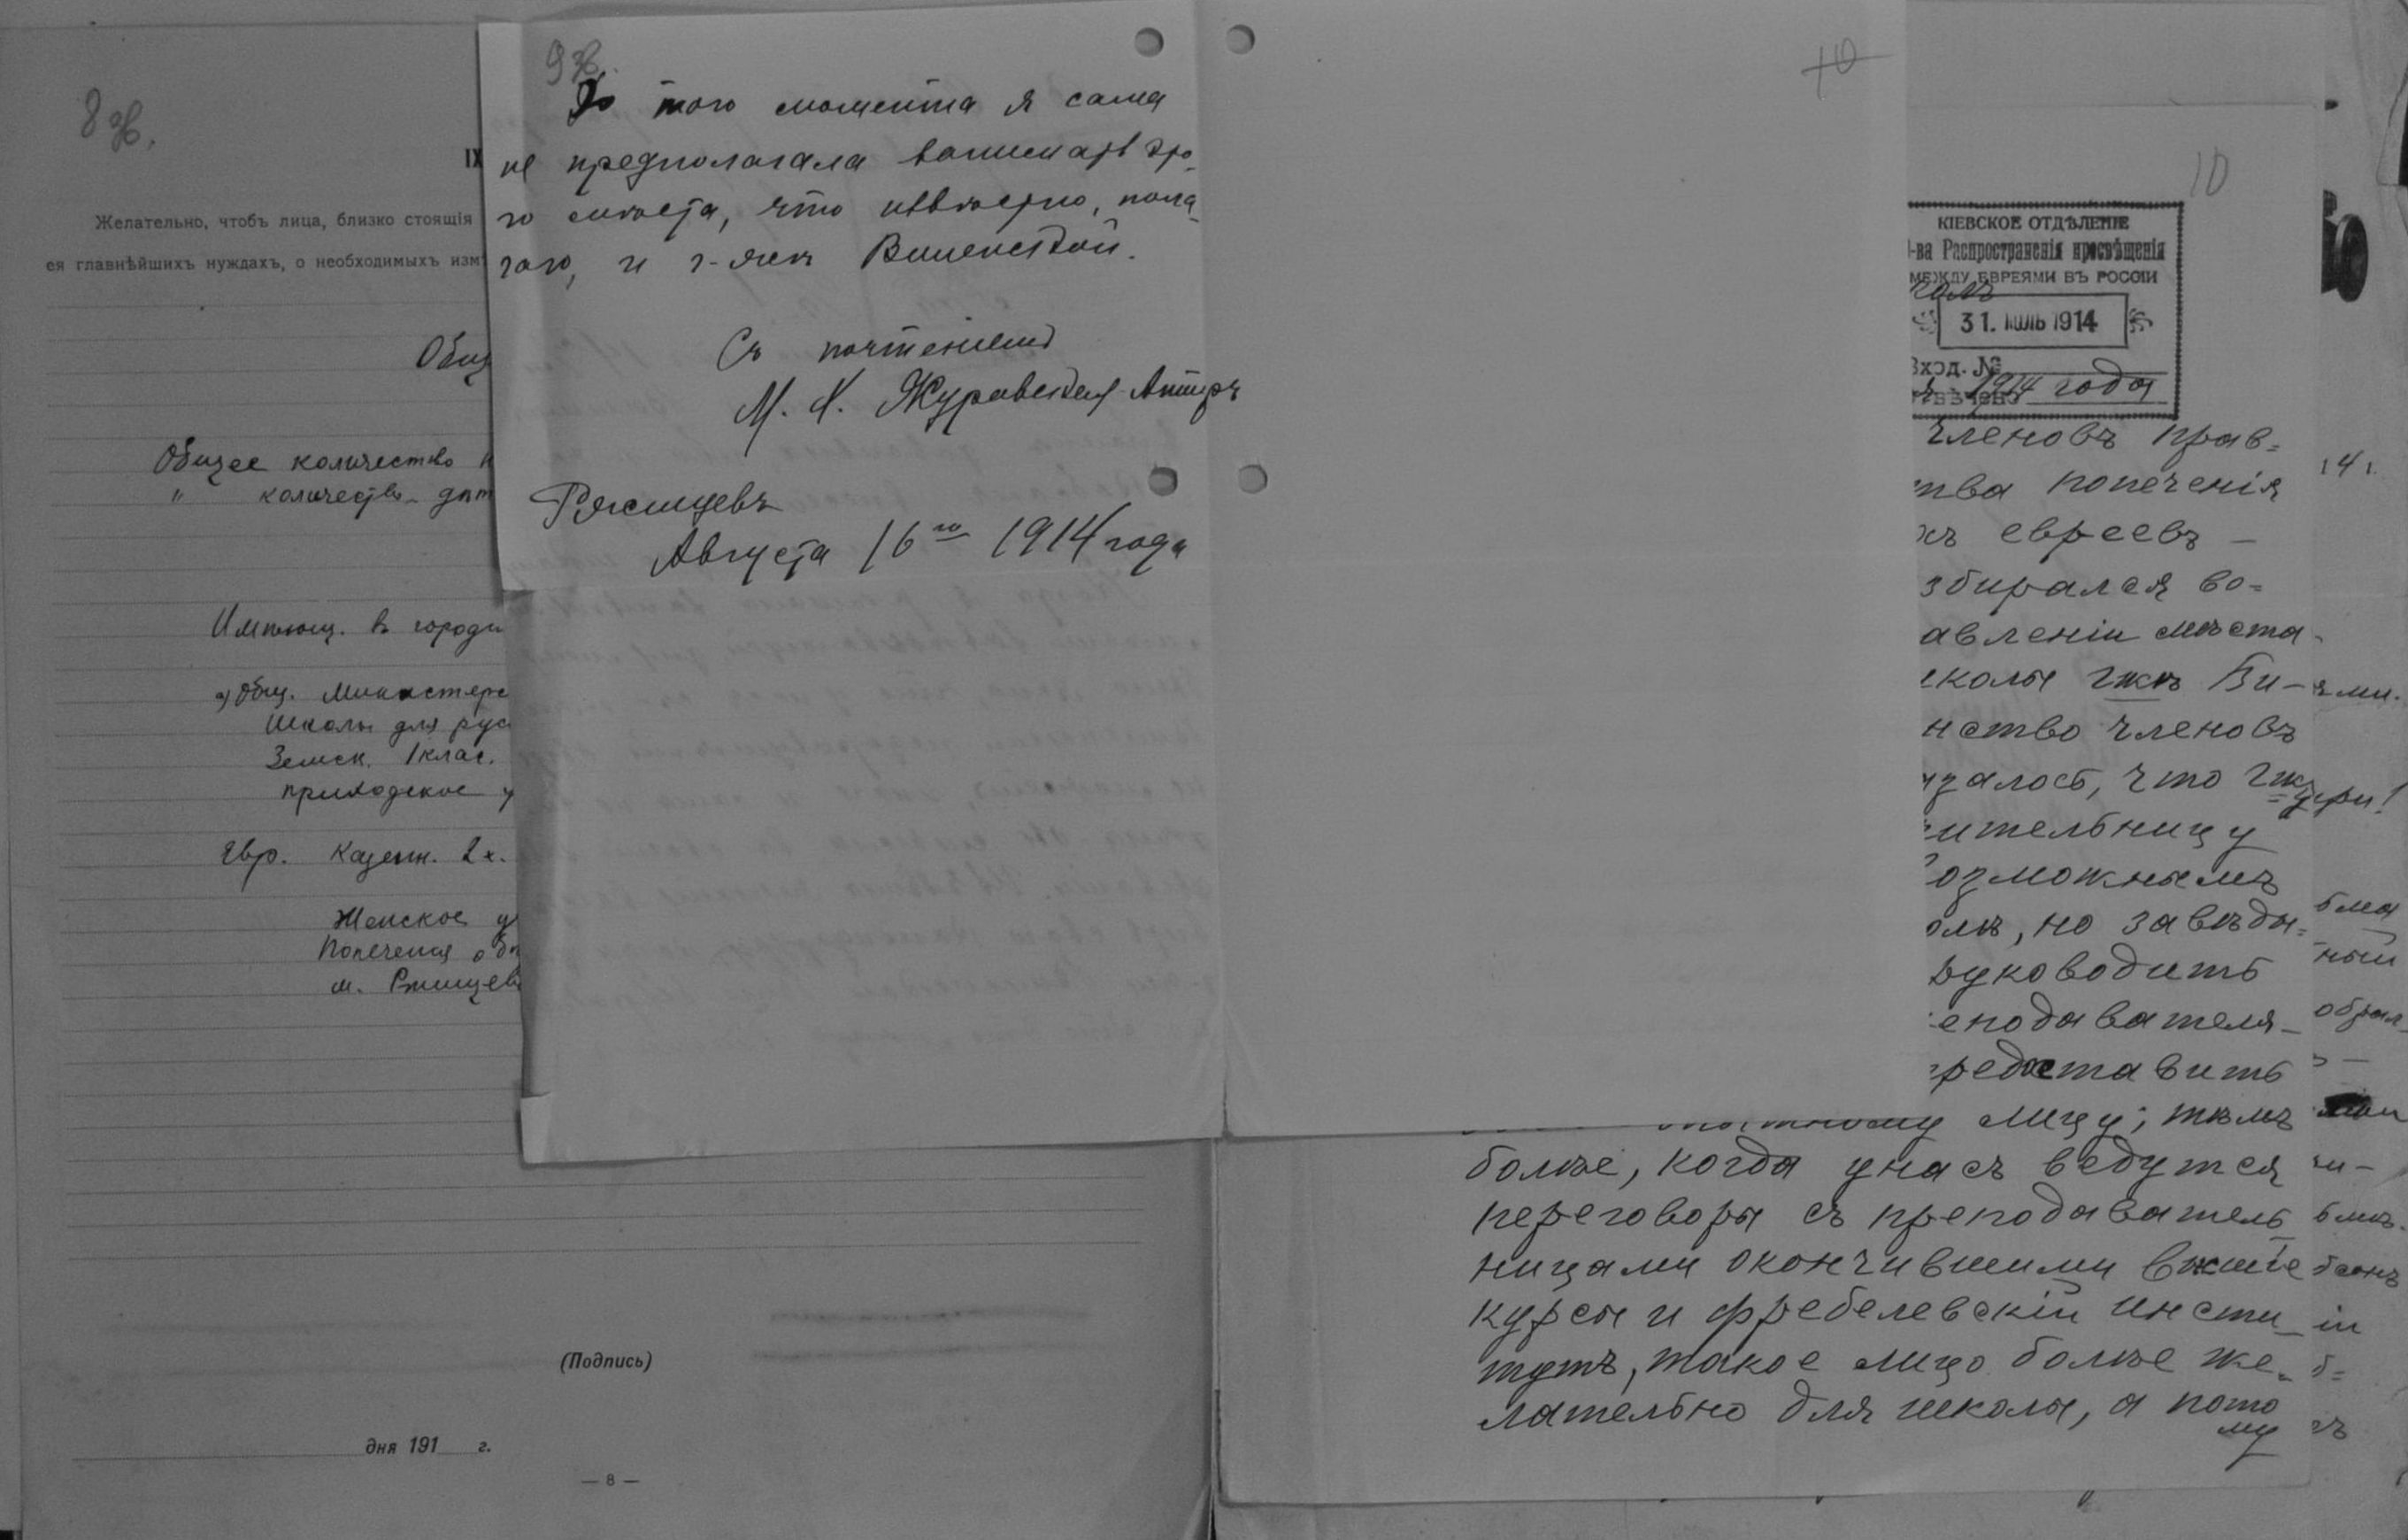 8 об.
IX
Желательно, чтобъ лица, близко стоящія
ея главнѣйшихъ нуждахъ, о необходимыхъ изм
Общ
Общее количество
" количество дѣт
Имѣющ. в городѣ
а) Общ. Министерс
Школы для рус
Земск. 1 клас.
приходское у
Евр. Казенн. 2х.
Женское у
Попеченія о бѣ
м. Ржищев
(Подпись)
дня 191 г.
— 8 —
9 об.
До того момента я сама
не предполагала занимать это
го мѣста, что извѣстно, пола
гаю, и г-жѣ Виленской.
Съ почтеніемъ
М. Х. Журавская-Аптеръ
Ржищевъ
Августа 16го 1914 года
10
10
КІЕВСКОЕ ОТДѢЛЕНІЕ
-ва Распространенія просвѣщенія
МЕЖДУ ЕВРЕЯМИ ВЪ РОССІИ
31. ІЮЛЬ 1914
Вход. №
1914 года
членовъ прав=
тва попеченія
хъ евреевъ —
збирался во=
авленіи мѣста
школы гжѣ Ви-
нство членовъ
азалось, что гж
ительницу
озможнымъ
олѣ, но завѣды=
руководить
еподавателя-
редоставить
лицу; тѣмъ
болѣе, когда у насъ ведутся
переговоры съ преподаватель
ницами окончившими высшіе
курсы и фребелевскій инсти_
тутъ, такое лицо болѣе же_
лательно для школы, а пото
му